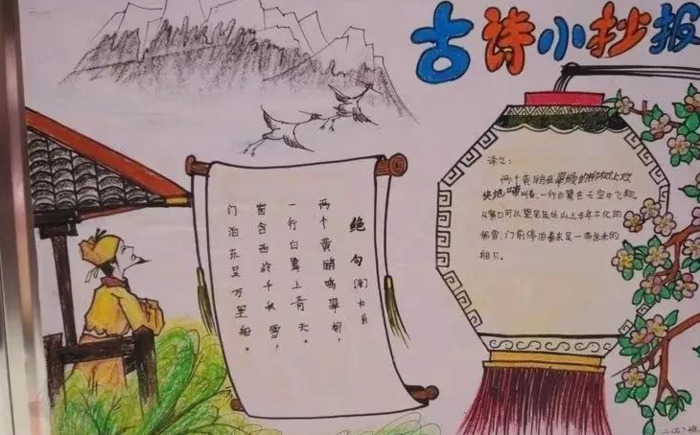 古诗小抄报
绝句
两个黄鹂鸣翠柳，
一行白鹭上青天。
窗含西岭千秋雪，
门泊东吴万里船。
译文：
两个黄鹂在翠绿的柳树上欢
快地鸣叫着，一行白鹭在天空中飞翔。
从窗口可以望见山上千年不化的
积雪，门前停泊着来的
船只。